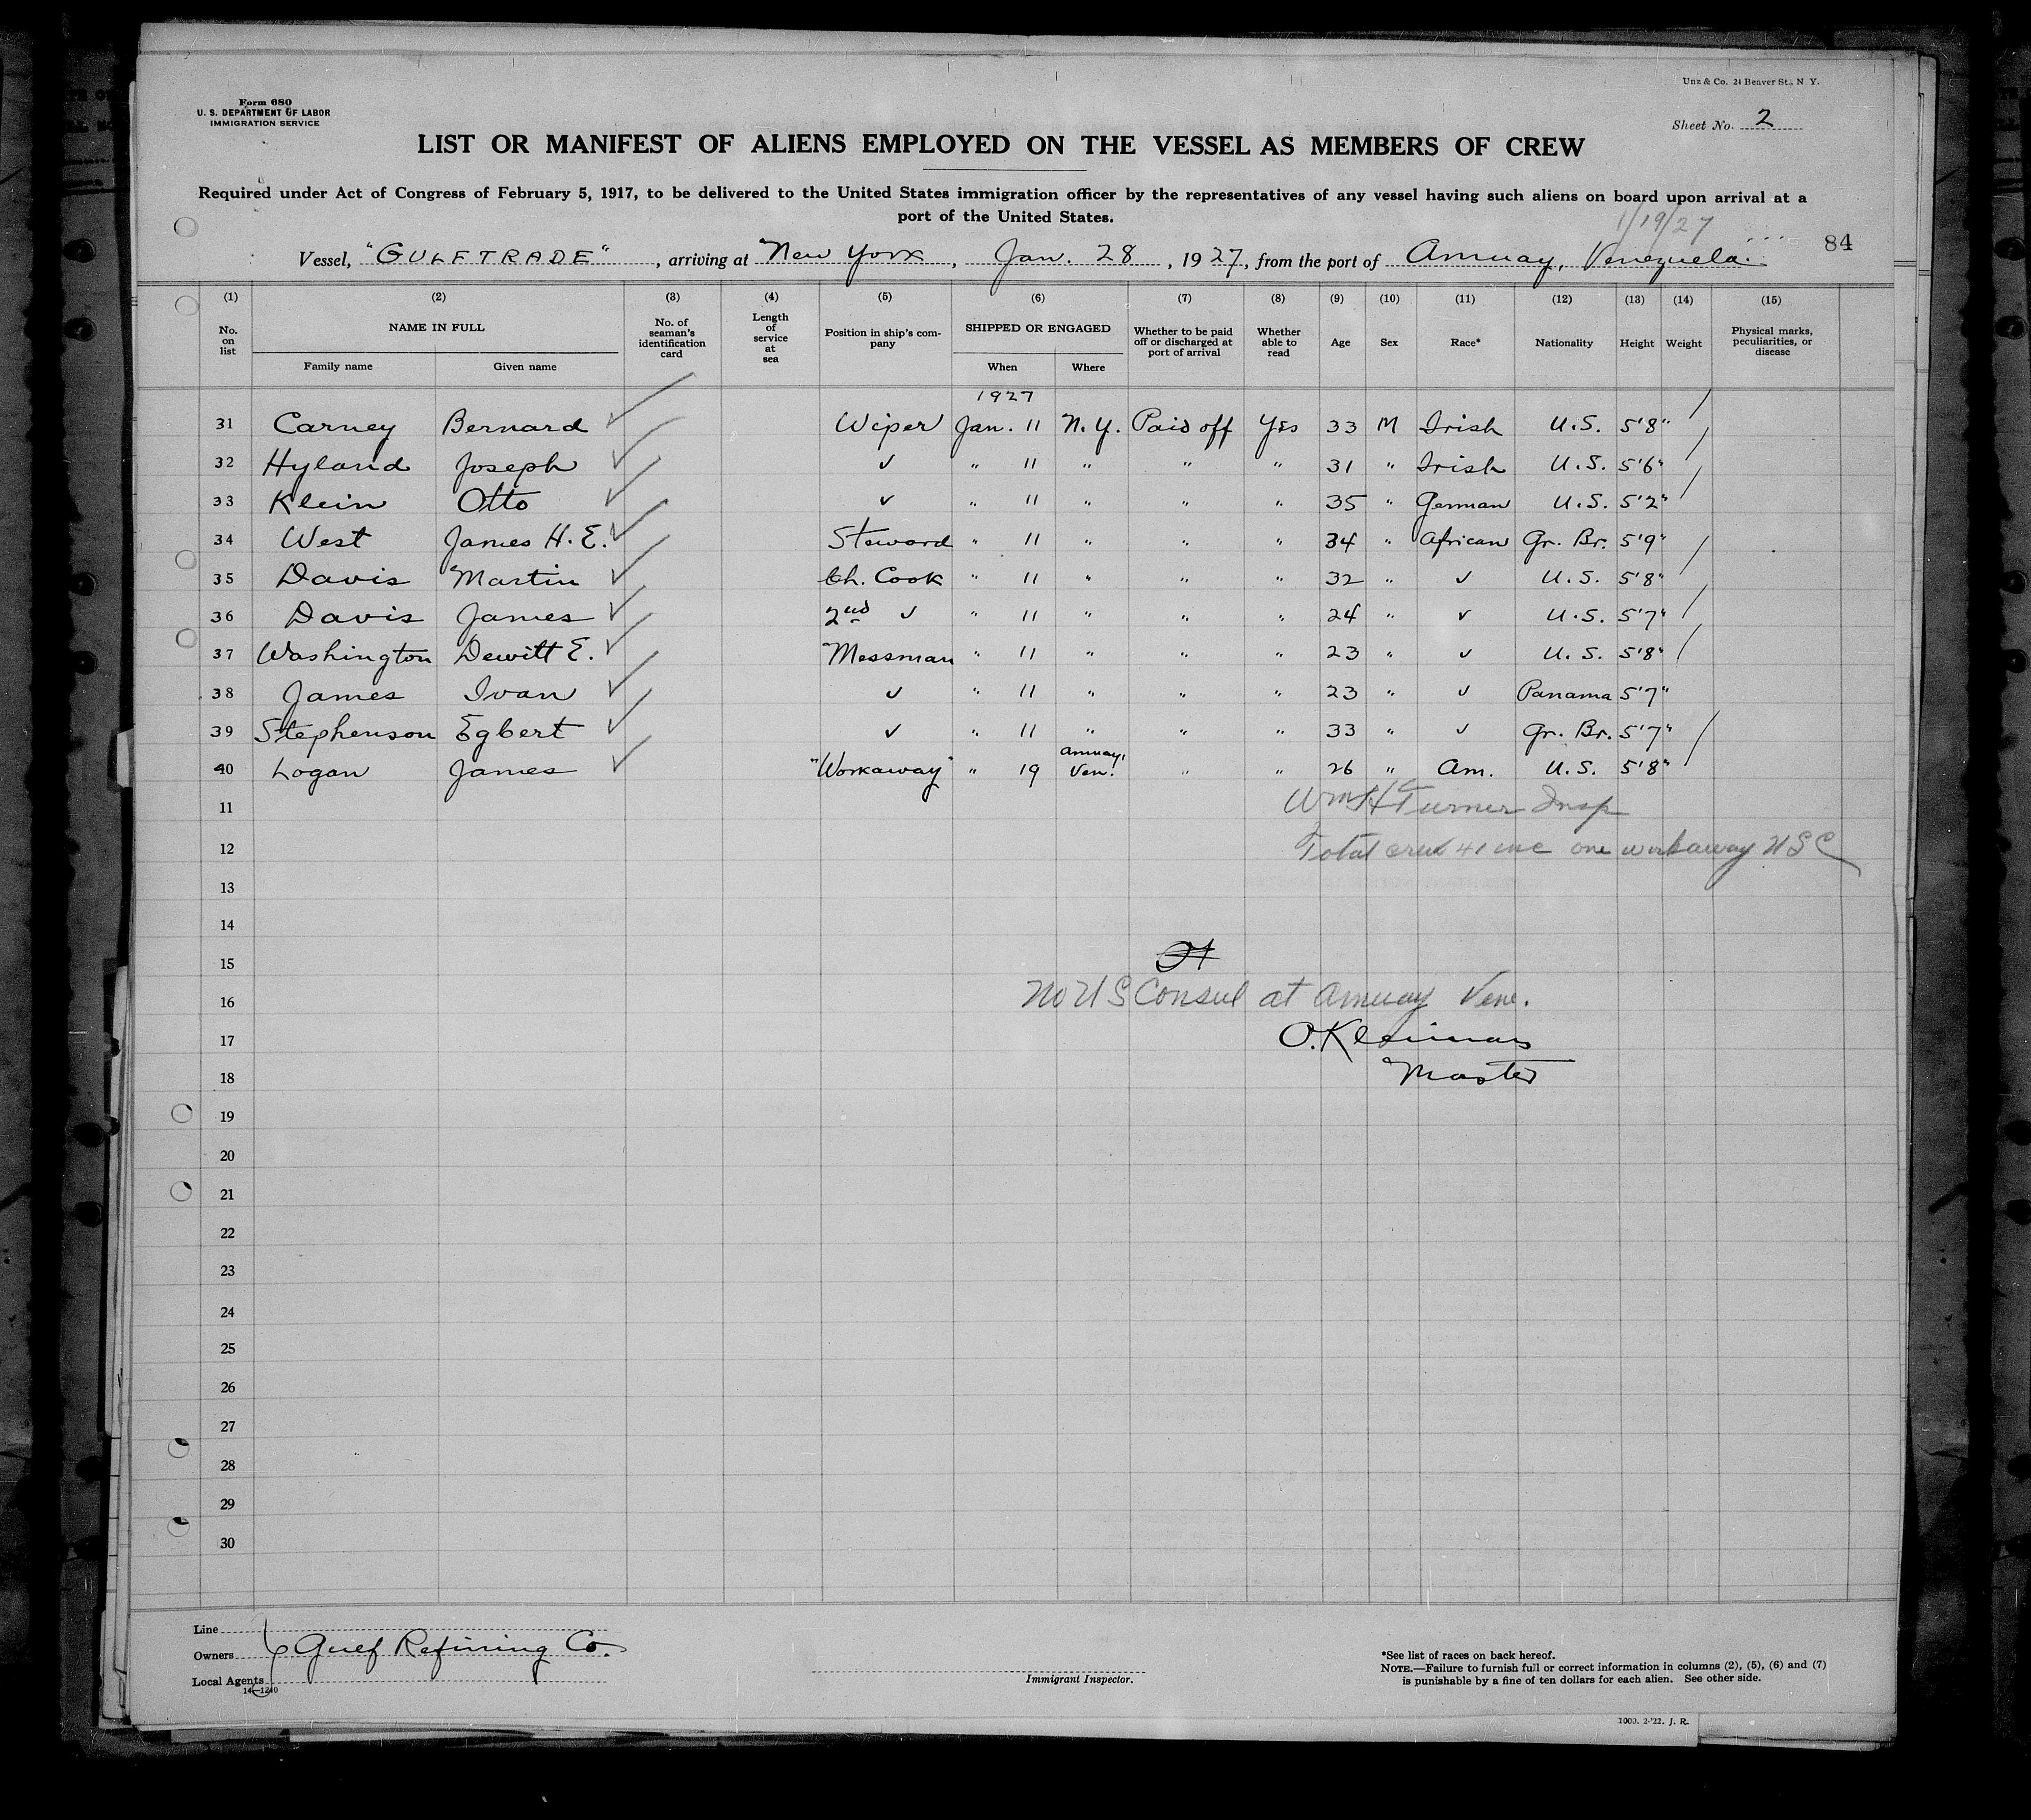 Unz & Co. 24 Beaver St., N Y.
Form 680
U. S. DEPARTMENT OF LABOR
IMMIGRATION SERVICE
Sheet No. 2
LIST OR MANIFEST OF ALIENS EMPLOYED ON THE VESSEL AS MEMBERS OF CREW
Required under Act of Congress of February 5, 1917, to be delivered to the United States immigration officer by the representatives of any vessel having such aliens on board upon arrival at a
port of the United States.
1/19/27
84
Vessel, "GULFTRADE", arriving at New York, Jan. 28, 1927, from the port of Amuay, Venezuela.
(1) (2) (3) (4) (5) (6) (7) (8) (9) (10) (11) (12) (13) (14) (15)
No. on list NAME IN FULL Family name Given name No. of seaman's identification card Length of service at sea Position in ship's company SHIPPED OR ENGAGED When Where Whether to be paid off or discharged at port of arrival Whether able to read Age Sex Race* Nationality Height Weight Physical marks, peculiarities, or disease
1927
31 Carney Bernard ✓ Wiper Jan. 11 N.Y. Paid off Yes 33 M Irish U.S. 5'8"
32 Hyland Joseph ✓ ✓ " 11 " " " 31 " Irish U.S. 5'6"
33 Klein Otto ✓ ✓ " 11 " " " 35 " German U.S. 5'2"
34 West James H. E. ✓ Steward " 11 " " " 34 " African Gr. Br. 5'9"
35 Davis Martin ✓ Ch. Cook " 11 " " " 32 " ✓ U.S. 5'8"
36 Davis James ✓ 2nd ✓ " 11 " " " 24 " ✓ U.S. 5'7"
37 Washington Dewitt E. ✓ Messman " 11 " " " 23 " ✓ U.S. 5'8"
38 James Ivan ✓ ✓ " 11 " " " 23 " ✓ Panama 5'7"
39 Stephenson Egbert ✓ ✓ " 11 " " " 33 " ✓ Gr. Br. 5'7"
40 Logan James ✓ "Workaway" " 19 Amuay, Ven. " " 26 " Am. U.S. 5'8"
11 Wm H Turner Insp
12 Total crew 41 inc one workaway USC
13
14
15
16 No US Consul at Amuay Vene.
17 O. Kleiman
18 Master
19
20
21
22
23
24
25
26
27
28
29
30
Line
Owners Gulf Refining Co.
Local Agents
14—1240
Immigrant Inspector.
*See list of races on back hereof.
NOTE.—Failure to furnish full or correct information in columns (2), (5), (6) and (7)
is punishable by a fine of ten dollars for each alien. See other side.
1000. 2-'22. J. R.